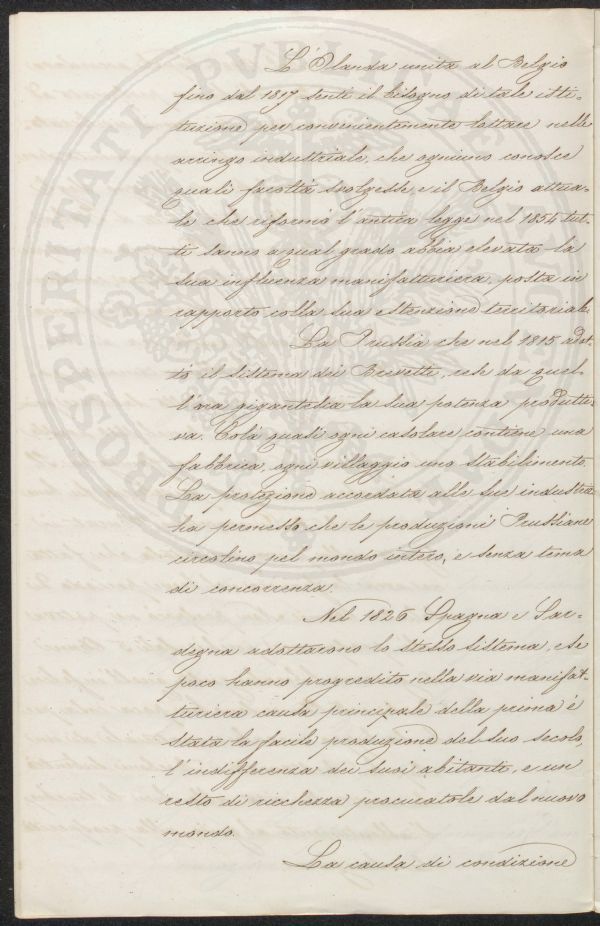 L'Olanda unita al Belgio
fino dal 1817 sentì il bisogno di tale isti-
tuzione per convenientemente lottare nelle
arringo industriale, che ogniuno conosce
quali facoltà svolgesse, e il Belgio attua-
le che riformò l'antica legge nel 1854 tut-
ti sanno a qual grado abbia elevata la
sua influenza manifatturiera, posta in
rapporto colla sua estenzione territoriale.
La Prussia che nel 1815 adot-
tò il sistema dei Brevetti, rese da quel-
l'ora gigantesca la sua potenza produtti-
va. Colà quasi ogni casolare contiene una
fabbrica, ogni villaggio uno stabilimento.
La protezione accordata alle sue industrie
ha permesso che le produzioni Prussiane
circolino pel mondo intero, e senza tema
di concorrenza.
Nel 1826 Spagna e Sar-
degna adottarono lo stesso sistema, e se
poco hanno progredito nella via manifat-
turiera causa principale della prima è
stata la facile produzione del suo secolo,
l'indifferenza dei suoi abitanti, e un
resto di ricchezza procuratole dal nuovo
mondo.
La causa di condizione
PROSPERITATI PVBLICAE